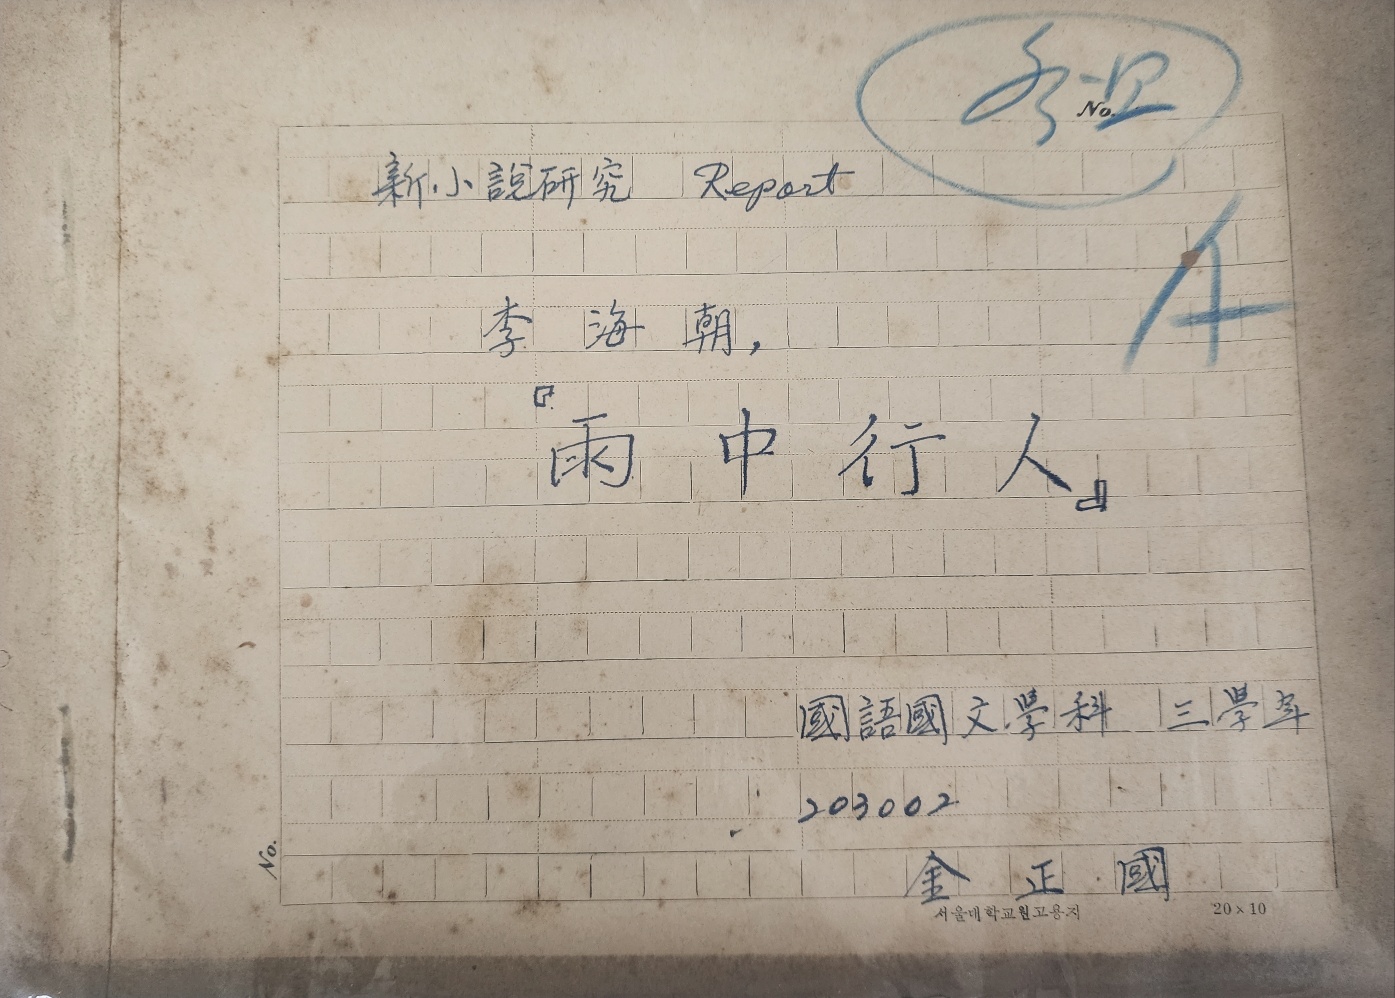 No.
新小說硏究 Report
A
李海朝,
『雨中行人』
國語國文學科 三學年
203002
金正國
서울대학교원고용지 20×10
No.